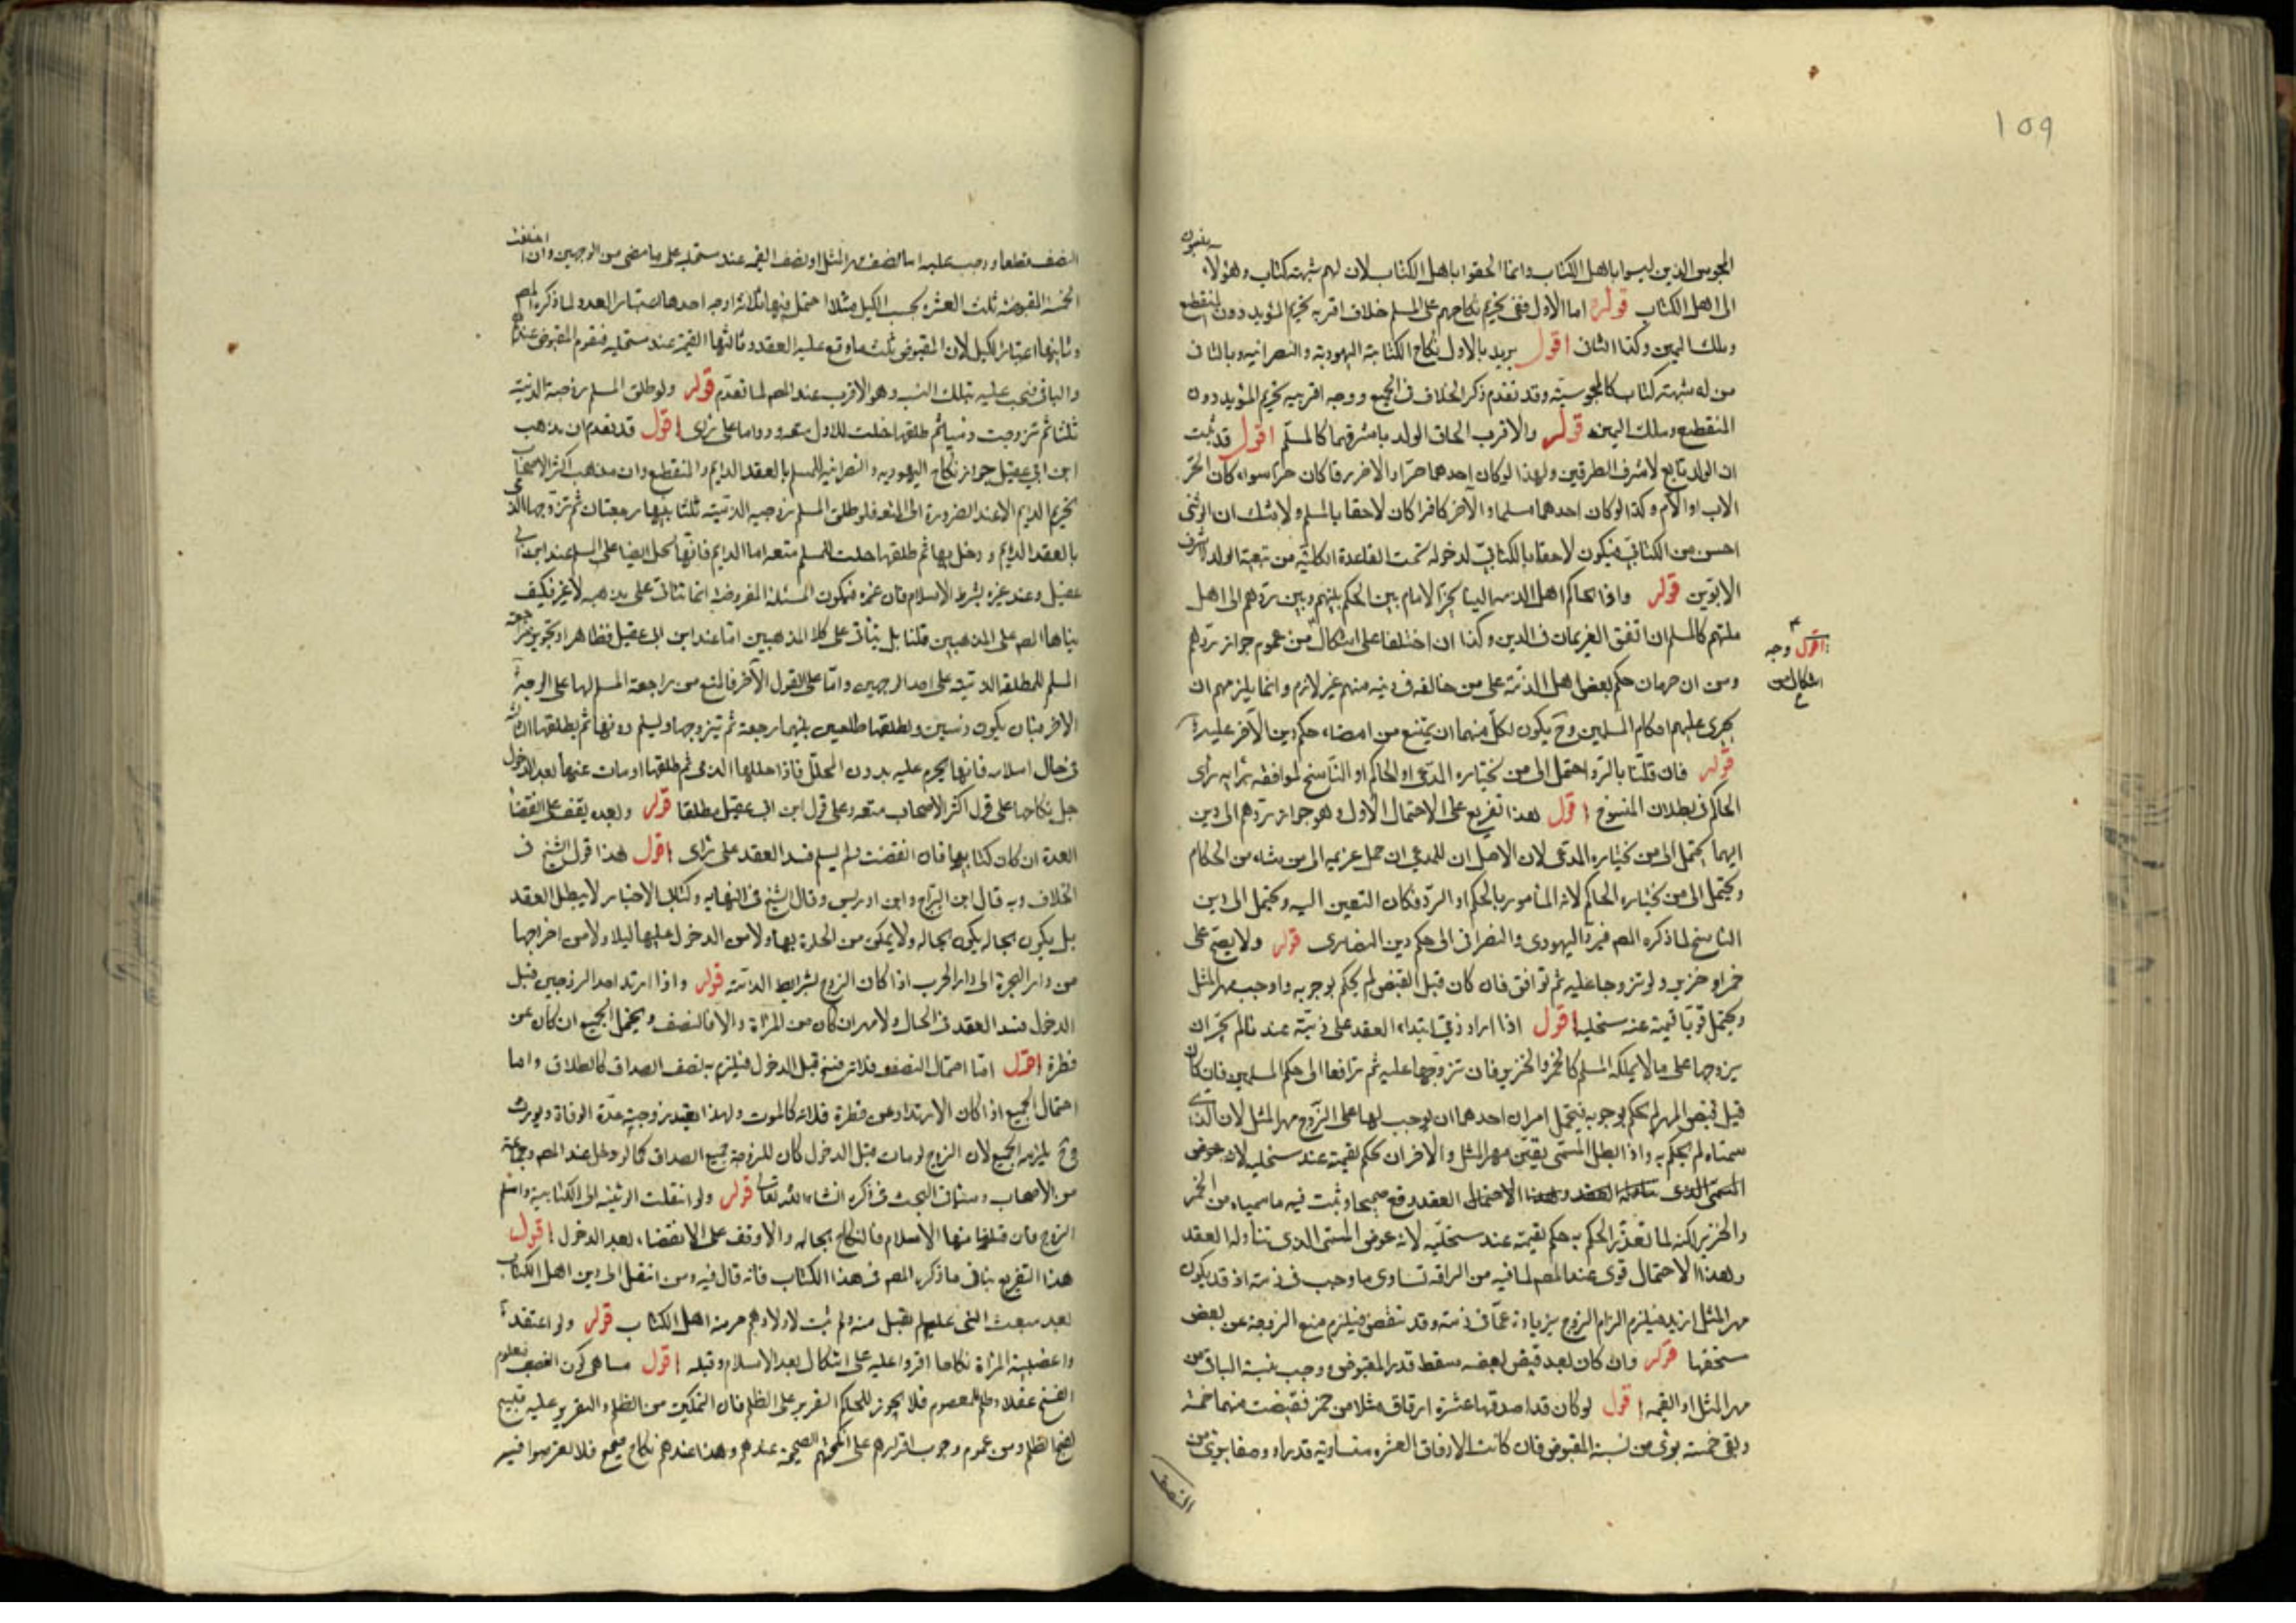 ١٥٩
المجوس الذين ليسوا باهل الكتاب وانما الحقوا باهل الكتاب لان لهم شبهة كتاب وهؤلاء ينسبون
الى اهل الكتاب قوله اما الاول ففى تحريم نكاحهم على المسلم خلاف اقربه تحريم المؤبد دون المنقطع
وملك اليمين وكذا الثانى اقول يريد بالاول نكاح الكتابية اليهودية والنصرانية وبالثانى
من له شبهة كتاب كالمجوسية وقد تقدم ذكر الخلاف فى الجميع ووجه اقربيه تحريم المؤبد دون
المنقطع وملك اليمين قوله والاقرب الحاق الولد باشرفهما كالمسلم اقول قد ثبت
ان الولد تابع لاشرف الطرفين ولهذا لو كان احدهما حرا والاخر رقا كان حرا سواء كان الحر
الاب او الام وكذا لو كان احدهما مسلما والآخر كافرا كان لاحقا بالمسلم ولا شك ان الوثنى
اخس من الكتابى فيكون لاحقا بالكتابى لدخوله تحت القاعدة الكلية من تبعية الولد لاشرف
الابوين قوله واذا تحاكم اهل الذمه الينا تخير الامام بين الحكم بينهم وبين ردهم الى اهل
ملتهم كالمسلم ان اتفق الغريمان فى الدين وكذا ان اختلفا على اشكال من عموم جواز ردهم
اقول وجه
اشكال من
ومن ان جريان حكم بعض اهل الذمة على من خالفه فى دينه منهم غير لازم وانما يلزمهم ان
يجرى عليهم احكام المسلمين وح يكون لكل منهما ان يمتنع من امضاء حكم دين الآخر عليه
قوله فان قلنا بالرد احتمل الى من يختاره المدعى او الحاكم او الناسخ لموافقته رأى
الحاكم فى بطلان المنسوخ اقول هذا تفريع على الاحتمال الاول وهو جواز ردهم الى دين
ايهما يحتمل الى من يختاره المدعى لان الاصل ان للمدعى ان حمل غريمه الى من شاء من الحكام
ويحتمل الى من يختاره الحاكم لانه المأمور بالحكم او الرد فكان التعين اليه ويحتمل الى دين
الناسخ لما ذكره المص فيرد اليهودى والنصرانى الى حكم دين النصارى قوله ولا يصح على
خمر او خنزير ولو تزوجا عليه ثم ترافعا فان كان قبل القبض لم يحكم بوجوبه واوجب مهر المثل
ويحتمل قويا قيمته عند مستحليه اقول اذا اراد ذمى ابتداء العقد على ذمية عندنا لم يجز ان
يزوجها على ما لا يملكه المسلم كالخمر والخنزير فان تزوجها عليه ثم ترافعا الى حكم المسلمين فان كان
قبل قبض المهر لم يحكم بوجوبه فيحتمل امران احدهما ان يوجب لها على الزوج مهر المثل لان الذى
سمياه لم يحكم به واذا بطل المسمى تعين مهر المثل والآخر ان يحكم بقيمته عند مستحليه لان عوض
المسمى الذى العقد وقع صحيحا وثبت فيه ما سمياه من الخمر
والخنزير لكنه لما تعذر الحكم به حكم بقيمته عند مستحليه لانه عوض المسمى الذى تناوله العقد
وهذا الاحتمال قوى عند المص لما فيه من تساوى ما وجب فى ذمته اذ قد يكون
مهر المثل ازيد فيلزم الزام الزوج بزيادة عما فى ذمته وقد تنقص فيلزم منع الزوجة عن بعض
مستحقها قوله وان كان بعد قبض بعضه سقط قدر المقبوض ووجب بنسبة الباقى من
مهر المثل او القيمه اقول لو كان قد اصدقها عشرة ازقاق مثلا من خمر فقبضت منهما خمسة
وبقى خمسة من نسبة المقبوض فان كانت الازقاق العشره متساوية قدرا ووصفا
النصف
النصف قطعا ووجب عليه اما نصف مهر المثل او نصف القيمه عند مستحليه على ما مضى من الوجهين وان اختلفت
الخمسة المقبوضة ثلث العشرة بحسب الكيل مثلا احتمل فيها ثلاثة اوجه احدها اعتبار العدد لما ذكره المص
وثانيها اعتبار الكيل لان المقبوض ثلث ما وقع عليه العقد وثالثها القيمة عند مستحليه فتقوم المقبوض عندهم
والباقى فيجب عليه بتلك النسبه وهو الاقرب عند المص لما تقدم قوله ولو طلق المسلم زوجته الذمية
ثلثا ثم تزوجت ذميا ثم طلقها حلت للاول بعقد ودواما على رأى اقول قد تقدم ان مذهب
ابن ابى عقيل جواز نكاح اليهوديه والنصرانيه للمسلم بالعقد الدايم والمنقطع وان مذهب اكثر الاصحاب
تحريم الدايم الا عند الضرورة فلو طلق المسلم زوجته الذمية ثلثا بينها رجعتان ثم تزوجها الذمى
بالعقد الدايم ودخل بها ثم طلقها حلت للمسلم متعه اما الدايم فانها تحل ايضا على المسلم عند ابن ابى
عقيل وعند غيره بشرط الاسلام فان عنده فتكون المسئلة المفروضة انما تتأتى على مذهبه لا غير فكيف
بناها المص على المذهبين قلنا بل يتأتى على كلا المذهبين اما عند ابن ابى عقيل فظاهر او تجويز مراجعة
المسلم للمطلقه الذمية على احد الوجهين واما على القول الآخر فالمنع من مراجعة المسلم لها على الوجه
الاخر بان يكون ذميين ويطلقها طلقتين بينهما رجعة ثم يتزوجها ويسلم دونها ثم يطلقها الثالثه
فى حال اسلامه فانها تحرم عليه بدون المحلل فاذا حللها الذمى ثم طلقها او مات عنها بعد الدخول
حل نكاحها على قول اكثر الاصحاب متعه وعلى قول ابن ابى عقيل مطلقا قوله وبعده يقف على انقضاء
العدة ان كان كتابيها فان انقضت ولم يسلم فسد العقد على رأى اقول هذا قول الشيخ فى
الخلاف وبه قال ابن البراج وابن ادريس وقال الشيخ فى النهايه وكتابى الاخبار لا يبطل العقد
بل يكون بحاله يكون بحاله ولا يمكن من الخلوة بها ولا من الدخول عليها ليلا ولا من اخراجها
من دار الهجرة الى دار الحرب اذا كان الزوج بشرايط الذمة قوله واذا ارتد احد الزوجين قبل
الدخول فسد العقد فى الحال ولا مهر ان كان من المرأة والا فالنصف ويحتمل الجميع ان كان عن
فطرة اقول اما احتمال النصف فلانه فسخ قبل الدخول فيلزم به نصف الصداق كالطلاق واما
احتمال الجميع اذا كان الارتداد عن فطرة فلانه كالموت ولهذا تعتد زوجته عدة الوفاة ويورث
وح يلزمه الجميع لان الزوج لو مات قبل الدخول كان للزوجة جميع الصداق كما لو دخل عند المص وجماعة
من الاصحاب وسيأتى البحث فى ذكره انشاء الله تعالى قوله ولو انتقلت الوثنيه الى الكتابية واسلم
الزوج فان قبلنا منها الاسلام فالنكاح بحاله والا وقف على الانقضاء بعد الدخول اقول
هذا التفريع ينافى ما ذكره المص فى هذا الكتاب فانه قال فيه ومن انتقل الى دين اهل الكتاب
بعد مبعث النبى عليه لم يقبل منه ولم يثبت لاولادهم حرمة اهل الكتاب قوله ولو اعتقدا
واغصبية المرأة نكاحا اقروا عليه على اشكال بعد الاسلام وقبله اقول منشأه كون الغصب معلوم
القبح عقلا وظلم للمعصوم فلا يجوز للحاكم التقرير على الظلم فان التمكين من الظلم والتقرير عليه قبيح
لقبح الظلم ومن عموم وجوب اقرارهم على انكحتهم الصحيحة عندهم وهذا عندهم نكاح صحيح فلا تعرضوا فيه